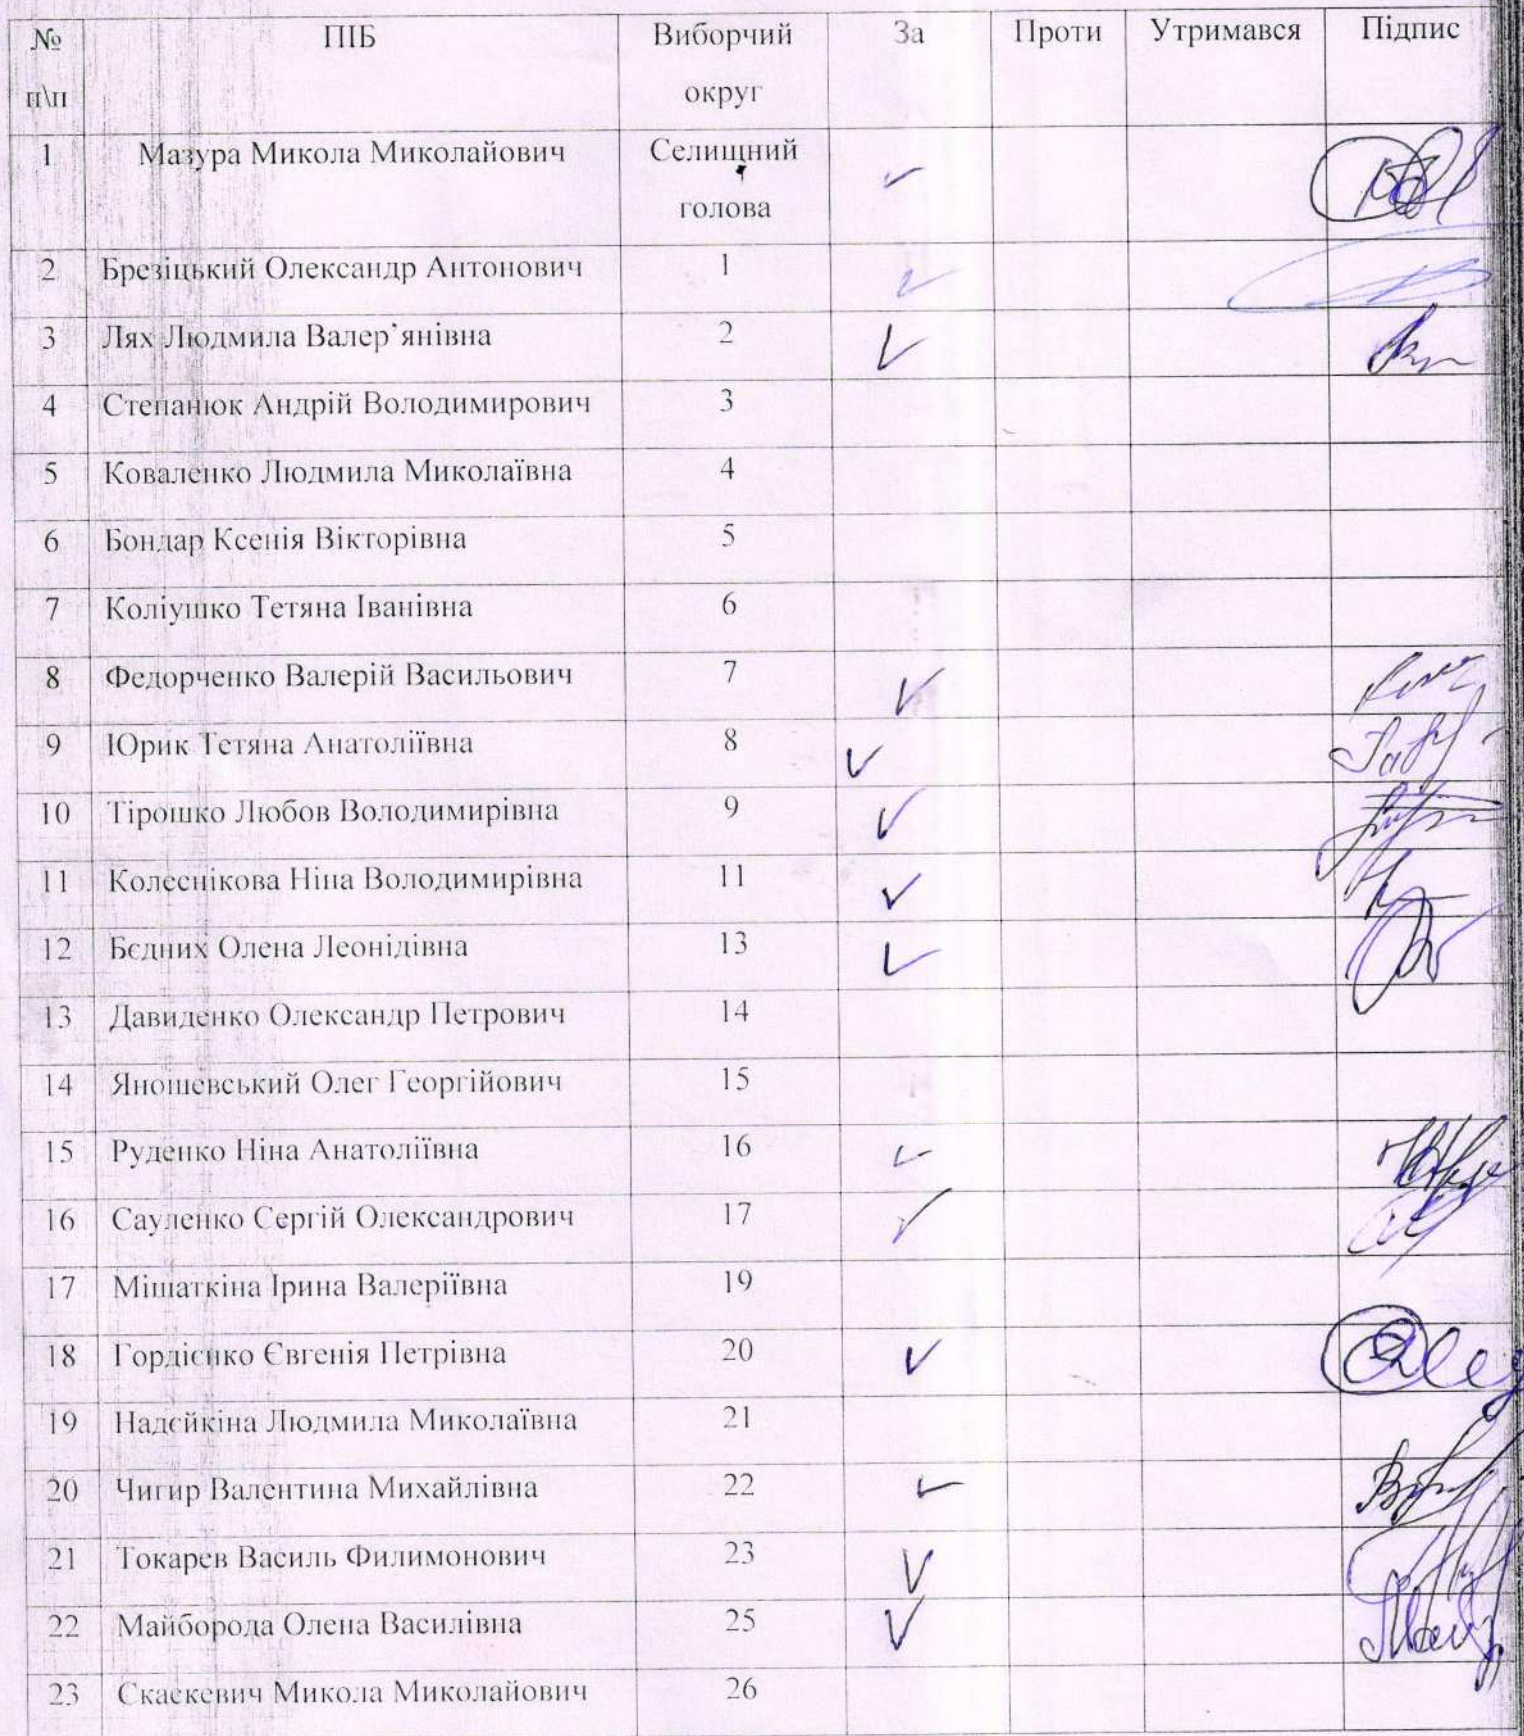 № п\п ПІБ Виборчий округ За Проти Утримався Підпис
1 Мазура Микола Миколайович Селищний голова ✓
2 Брезіцький Олександр Антонович 1 ✓
3 Лях Людмила Валер’янівна 2 ✓
4 Степанюк Андрій Володимирович 3
5 Коваленко Людмила Миколаївна 4
6 Бондар Ксенія Вікторівна 5
7 Коліушко Тетяна Іванівна 6
8 Федорченко Валерій Васильович 7 ✓
9 Юрик Тетяна Анатоліївна 8 ✓
10 Тірошко Любов Володимирівна 9 ✓
11 Колеснікова Ніна Володимирівна 11 ✓
12 Бєдних Олена Леонідівна 13 ✓
13 Давиденко Олександр Петрович 14
14 Яношевський Олег Георгійович 15
15 Руденко Ніна Анатоліївна 16 ✓
16 Сауленко Сергій Олександрович 17 ✓
17 Мішаткіна Ірина Валеріївна 19
18 Гордієнко Євгенія Петрівна 20 ✓
19 Надєйкіна Людмила Миколаївна 21
20 Чигир Валентина Михайлівна 22 ✓
21 Токарев Василь Филимонович 23 ✓
22 Майборода Олена Василівна 25 ✓
23 Скаскевич Микола Миколайович 26